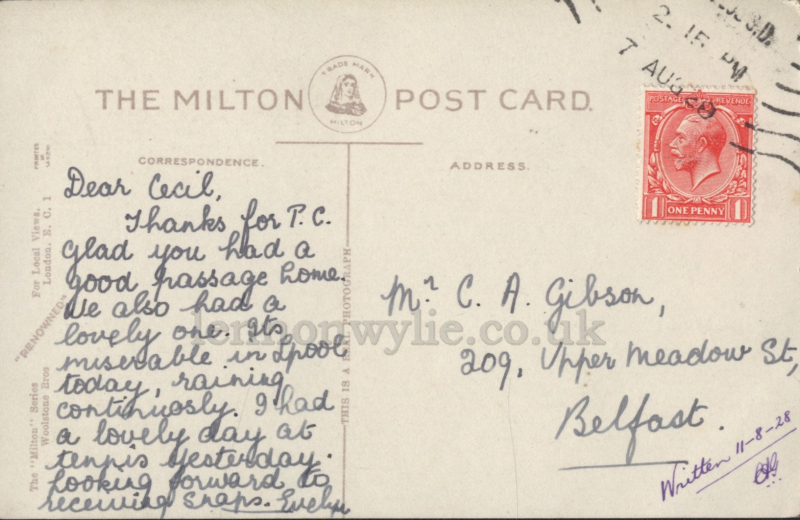 2. 15 PM
7 AUG 28
THE MILTON POST CARD.
TRADE MARK
MILTON
POSTAGE REVENUE
1 ONE PENNY 1
CORRESPONDENCE.
ADDRESS.
Dear Cecil,
Thanks for P.C.
Glad you had a
good passage home.
We also had a
lovely one. Its
miserable in Lpool
today, raining
continuosly. I had
a lovely day at
tennis yesterday.
Looking forward to
receiving snaps. Evelyn
Mr C. A. Gibson,
209, Upper Meadow St,
Belfast.
Written 11-8-28
lennonwylie.co.uk
THIS IS A REAL PHOTOGRAPH
For Local Views.
London. E. C. 1
"RENOWNED"
The "Milton" Series
Woolstone Bros